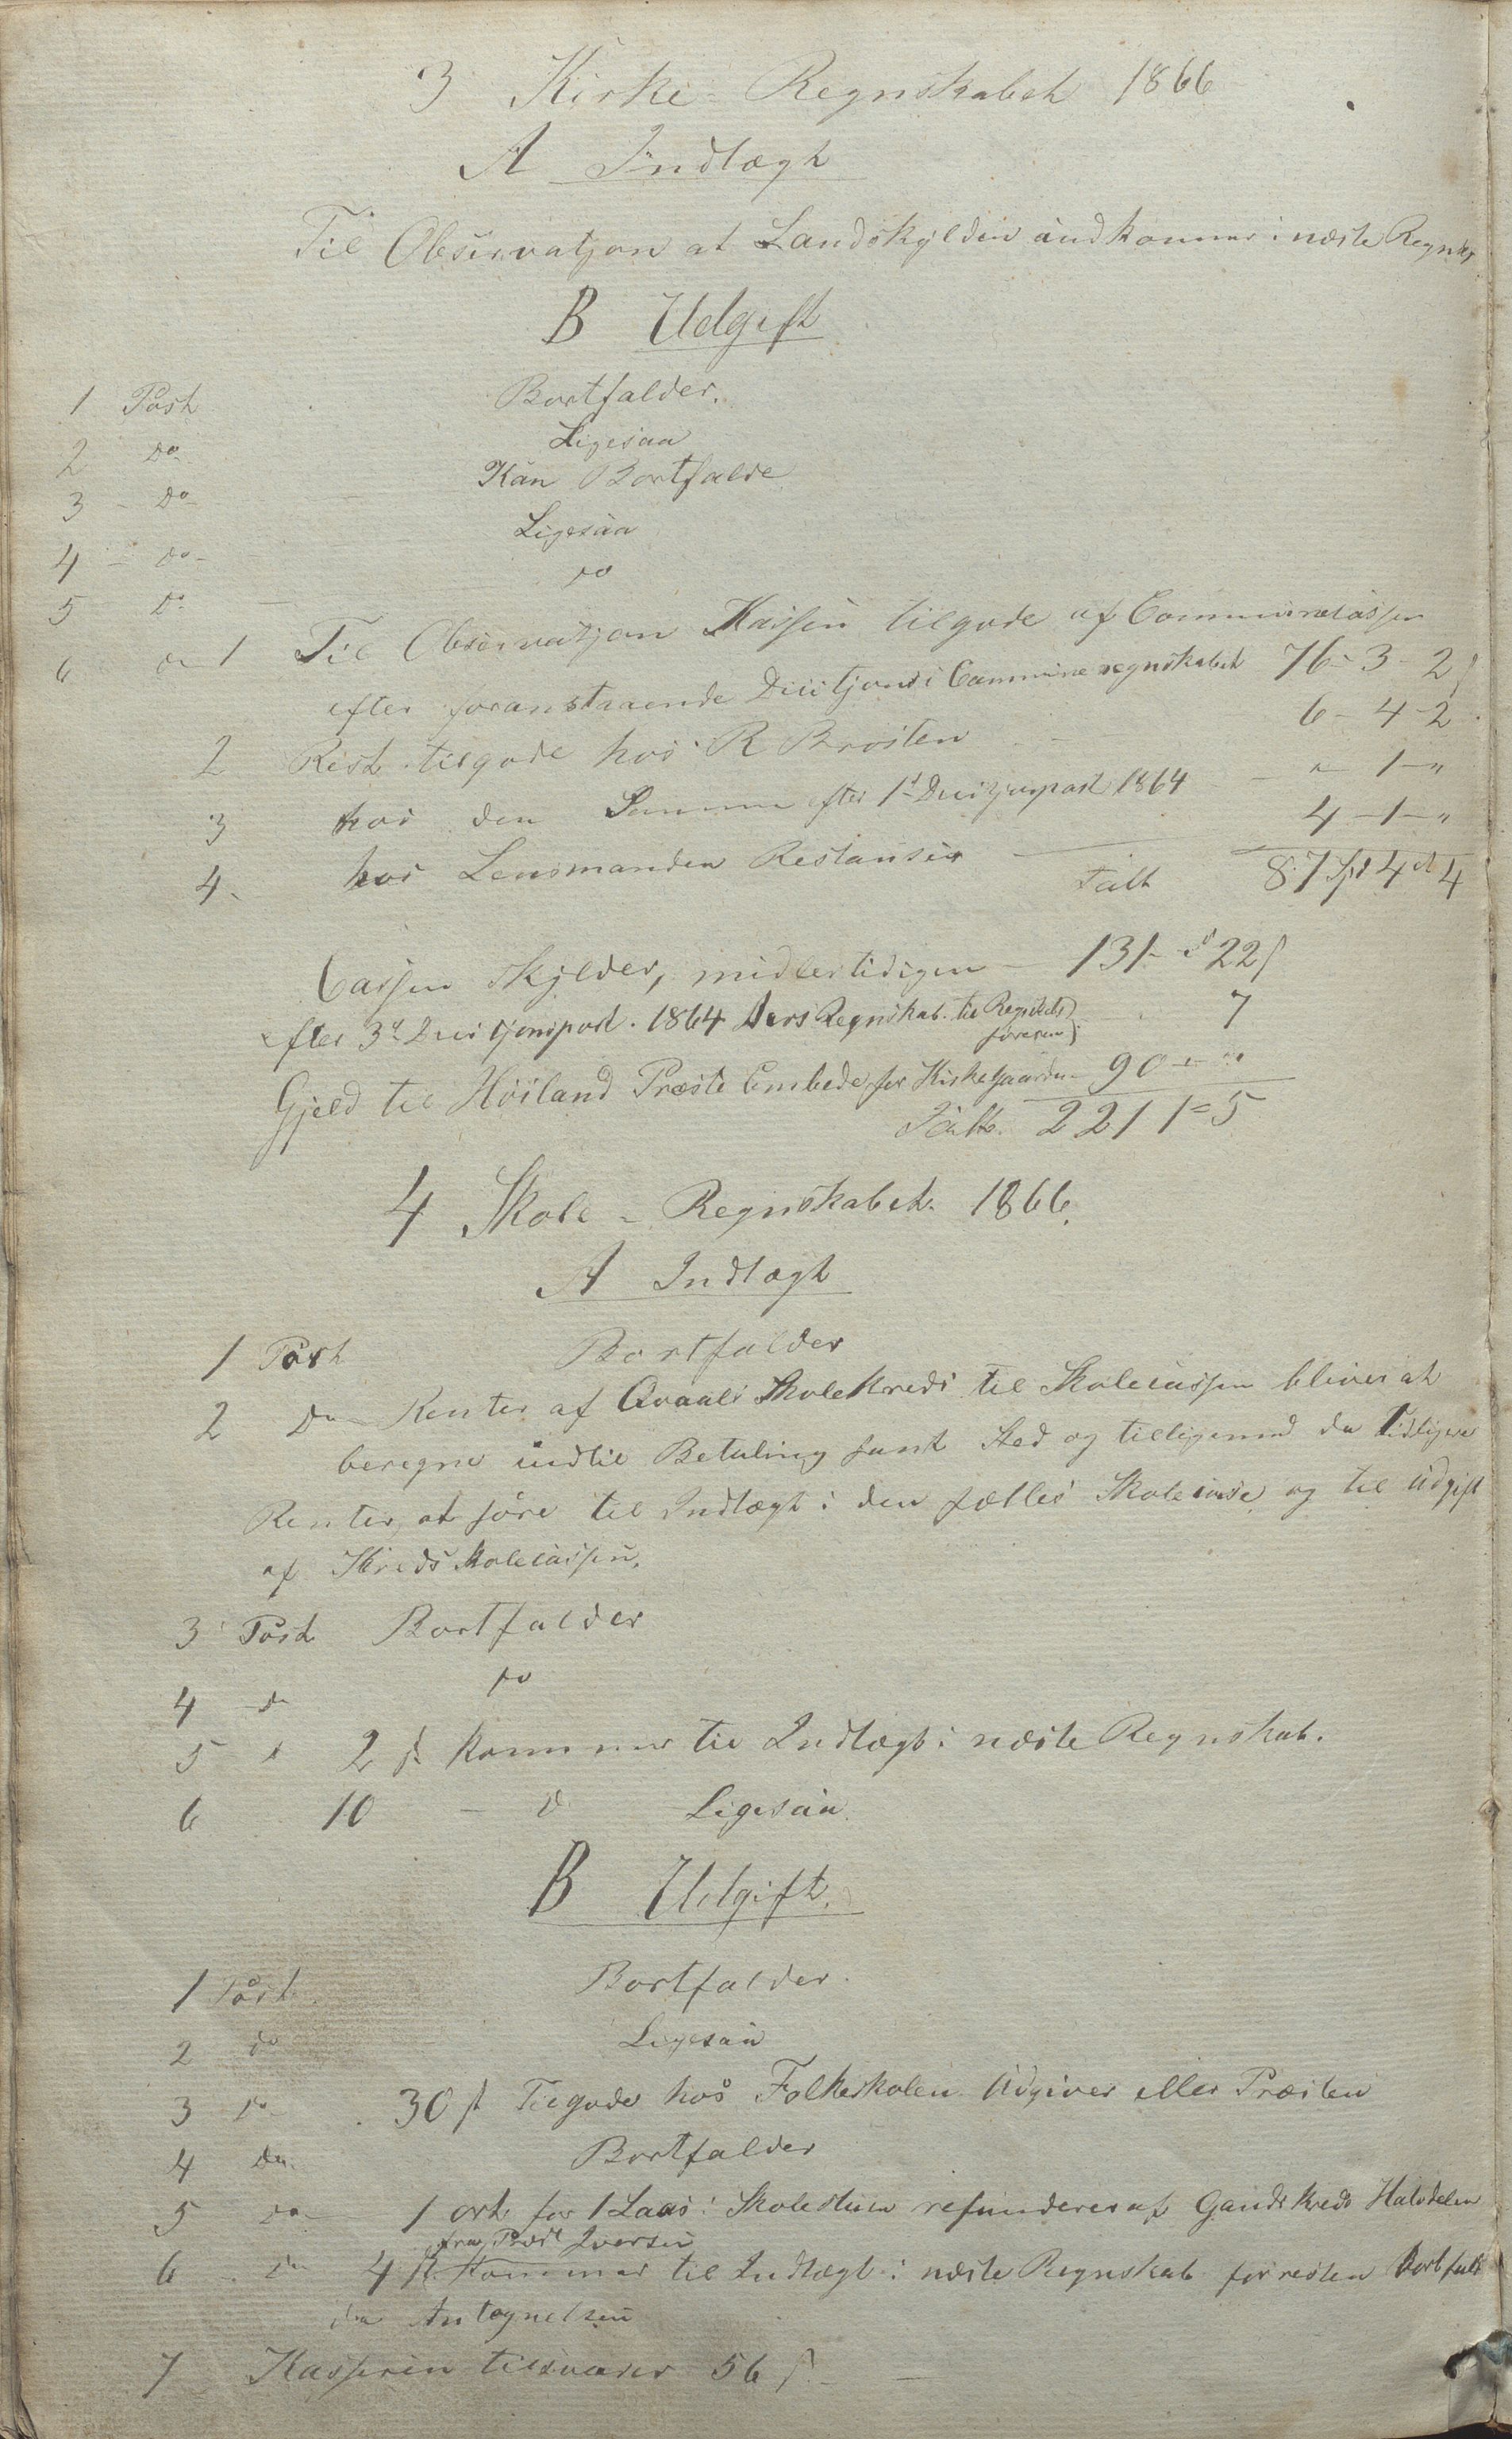 3 Kirke-Regnskabet 1866
A Indtægt
Til Observatjon at Landskylden indkommer i næste Regnsk
B Udgift
1 Post Bortfalder.
2 Do Ligesaa
3 - Do - Kan Bortfalde
4 - do - Ligesaa
5 Do - do
6 do 1 Til Observasjon Kassen tilgode af Communecassen
efter foranstaaende Desitjon i Commune regnskabet 76 - 3 - 2
2 Rest tilgode hos R Brosten 6 - 4 - 2
3 hos den Samme efter 1ste Desitjonspost 1864 " 1 - "
4. hos Lensmanden Restanser 4 - 1 - "
Talt 87 Spd 4 4
Cassen skylder, midlertidigen - 131 - 22 s
efter 3die Desitjonspost. 1864 Aars Regnskab. til Regnskabs
føreren 7
Gjeld til Høiland Præste Embede for Kirkegaarden - 90 - " "
Talt. 221 1 = 5
4 Skole - Regnskabet 1866.
A Indtægt
1 Post Bortfalder
2 Do Renter af Qvaals Skolekreds til Skolecassen bliver at
beregne indtil Betaling fant Sted og tilligemed de Tidligere
Renter, at føre til Indtægt i den fælles Skolecasse og til Udgift
af Kreds Skolecassen.
3 Post Bortfalder
4 do do
5 d 2 s kommer til Indtægt i næste Regnskab.
6 10 - d Ligesaa
B Udgift.
1 Post Bortfalder.
2 do Ligesaa
3 do 30 s Tilgode hos Folkeskolen Udgiver eller Præsten
4 do Bortfalder
5 do 1 ort for 1 Laas i Skolestuen refunderes af Gands Kreds Halvdelen
fra Iversen
6 - do 4 s. Kommer til Indtægt i næste Regnskab forresten bortfald
Antegnelsen
7 Kassereren tilsvarer 56 s -